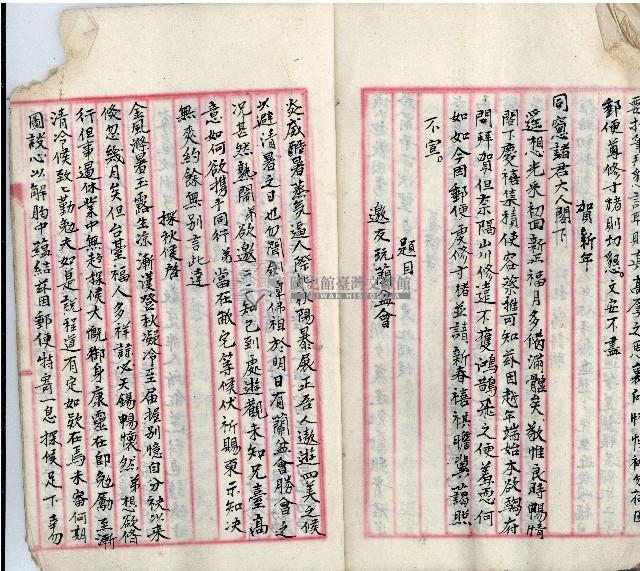 郵便尊修寸楮則切懇。文安不盡
賀新年
同窓諸君大人閣下
遙想光來初回新正福月多備滿體矣敬惟良時暢情
閣下慶禧集積使容蔡推可知茲因越年端始本欲躬府
開拜賀但奈隔山川修途不獲鴻鵲飛之使羞恧何
如如今因郵便虔修寸楮並請新春禧祺瞻冀藹照
不宣。
題目
邀友玩蘭盆會
炎威酷暑蒸氣逼人際此秋陽暴展正吾人遨遊四美之候
以避清暑之日也勿聞
佛祖於明日有蘭盆會勝會之
況甚然熱鬧弟欲邀二三知己到處遊觀未知兄臺高
意如何欲携手同行弟當在敝宅等候伏祈賜柬示知決
無爽約餘無別言此達
探秋候啓
金風滌暑玉露生凉漸謹登秋凝冷至届握別憶自分袂以來
倏忽幾月矣但台基福人多祥諒必天錫暢懷然弟想欲脩
行但事逼休業中無趋探候大慨御身康靈在即勉勵至漸
清冷候致乙勤勉夫如是說程道有定如欵在焉未審何期
圖談心以解胸中蘊結茲因郵便特寄一息探候足下事勿
國史館臺灣文獻館
TAIWAN HISTORICA